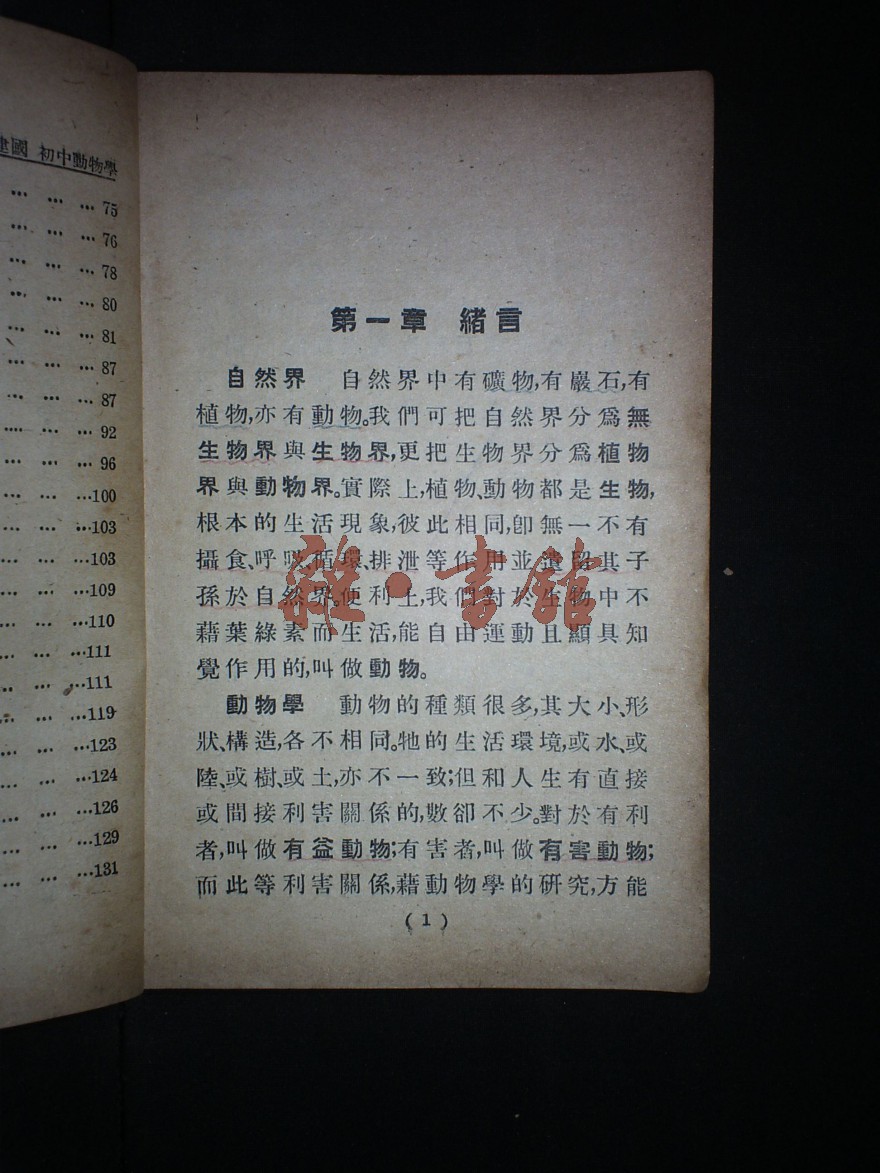 建國 初中動物學
… … … 75
… … … 76
… … … 78
… … … 80
… … … 81
… … … 87
… … … 87
… … … 92
… … … 96
… … …100
… … …103
… … …103
… … …109
… … …110
… … …111
… … …111
… … …119
… … …123
… … …124
… … …126
… … …129
… … …131
第一章 緒言
自然界 自然界中有礦物,有巖石,有
植物,亦有動物。我們可把自然界分爲無
生物界與生物界,更把生物界分爲植物
界與動物界。實際上,植物、動物都是生物,
根本的生活現象,彼此相同,卽無一不有
攝食、呼吸、循環、排泄等作用並遺留其子
孫於自然界。便利上,我們對於生物中不
藉葉綠素而生活,能自由運動且顯具知
覺作用的,叫做動物。
動物學 動物的種類很多,其大小、形
狀、構造,各不相同。牠的生活環境,或水、或
陸、或樹、或土,亦不一致;但和人生有直接
或間接利害關係的,數卻不少。對於有利
者,叫做有益動物;有害者,叫做有害動物;
而此等利害關係,藉動物學的硏究,方能
(1)
雜·書館